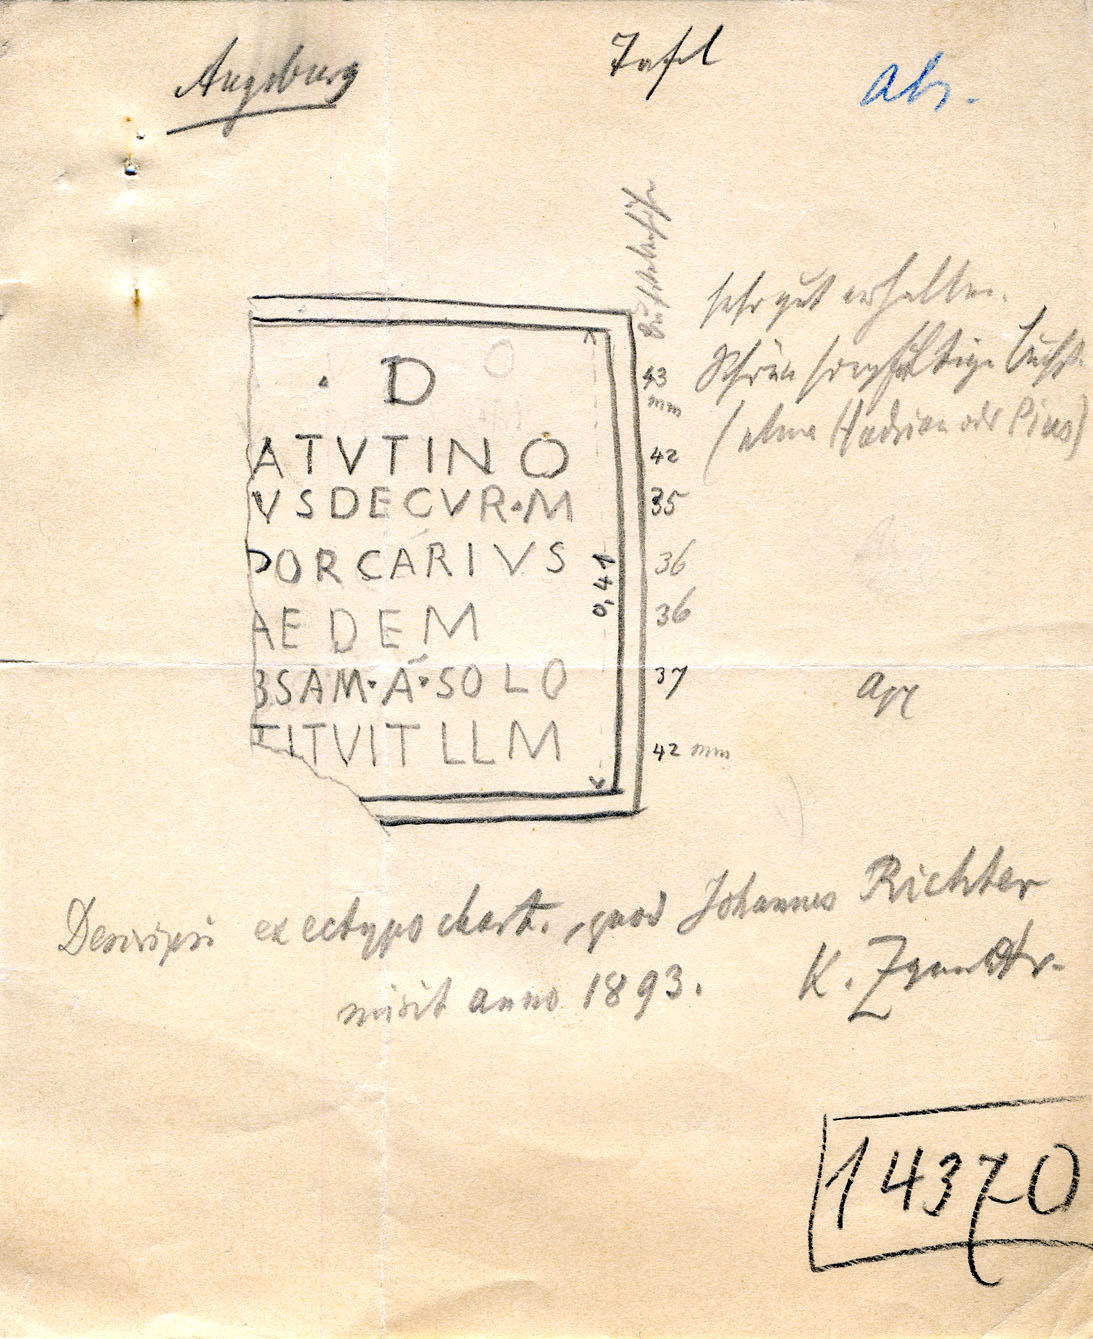 Augsburg
Tafel
abs.
Buchstabenhöhe
sehr gut erhalten.
Schöne sorgfältige Buchst.
(etwa Hadrian oder Pius)
· D
43 mm
ATVTINO
42
VSDECVR·M
35
PORCÁRIVS
36
AEDEM
36
BSAM·Á·SOLO
37
TITVIT LLM
42 mm
0,41
Descripsi ex ectypo chart., quod Johannes Richter
misit anno 1893.
K.
14370